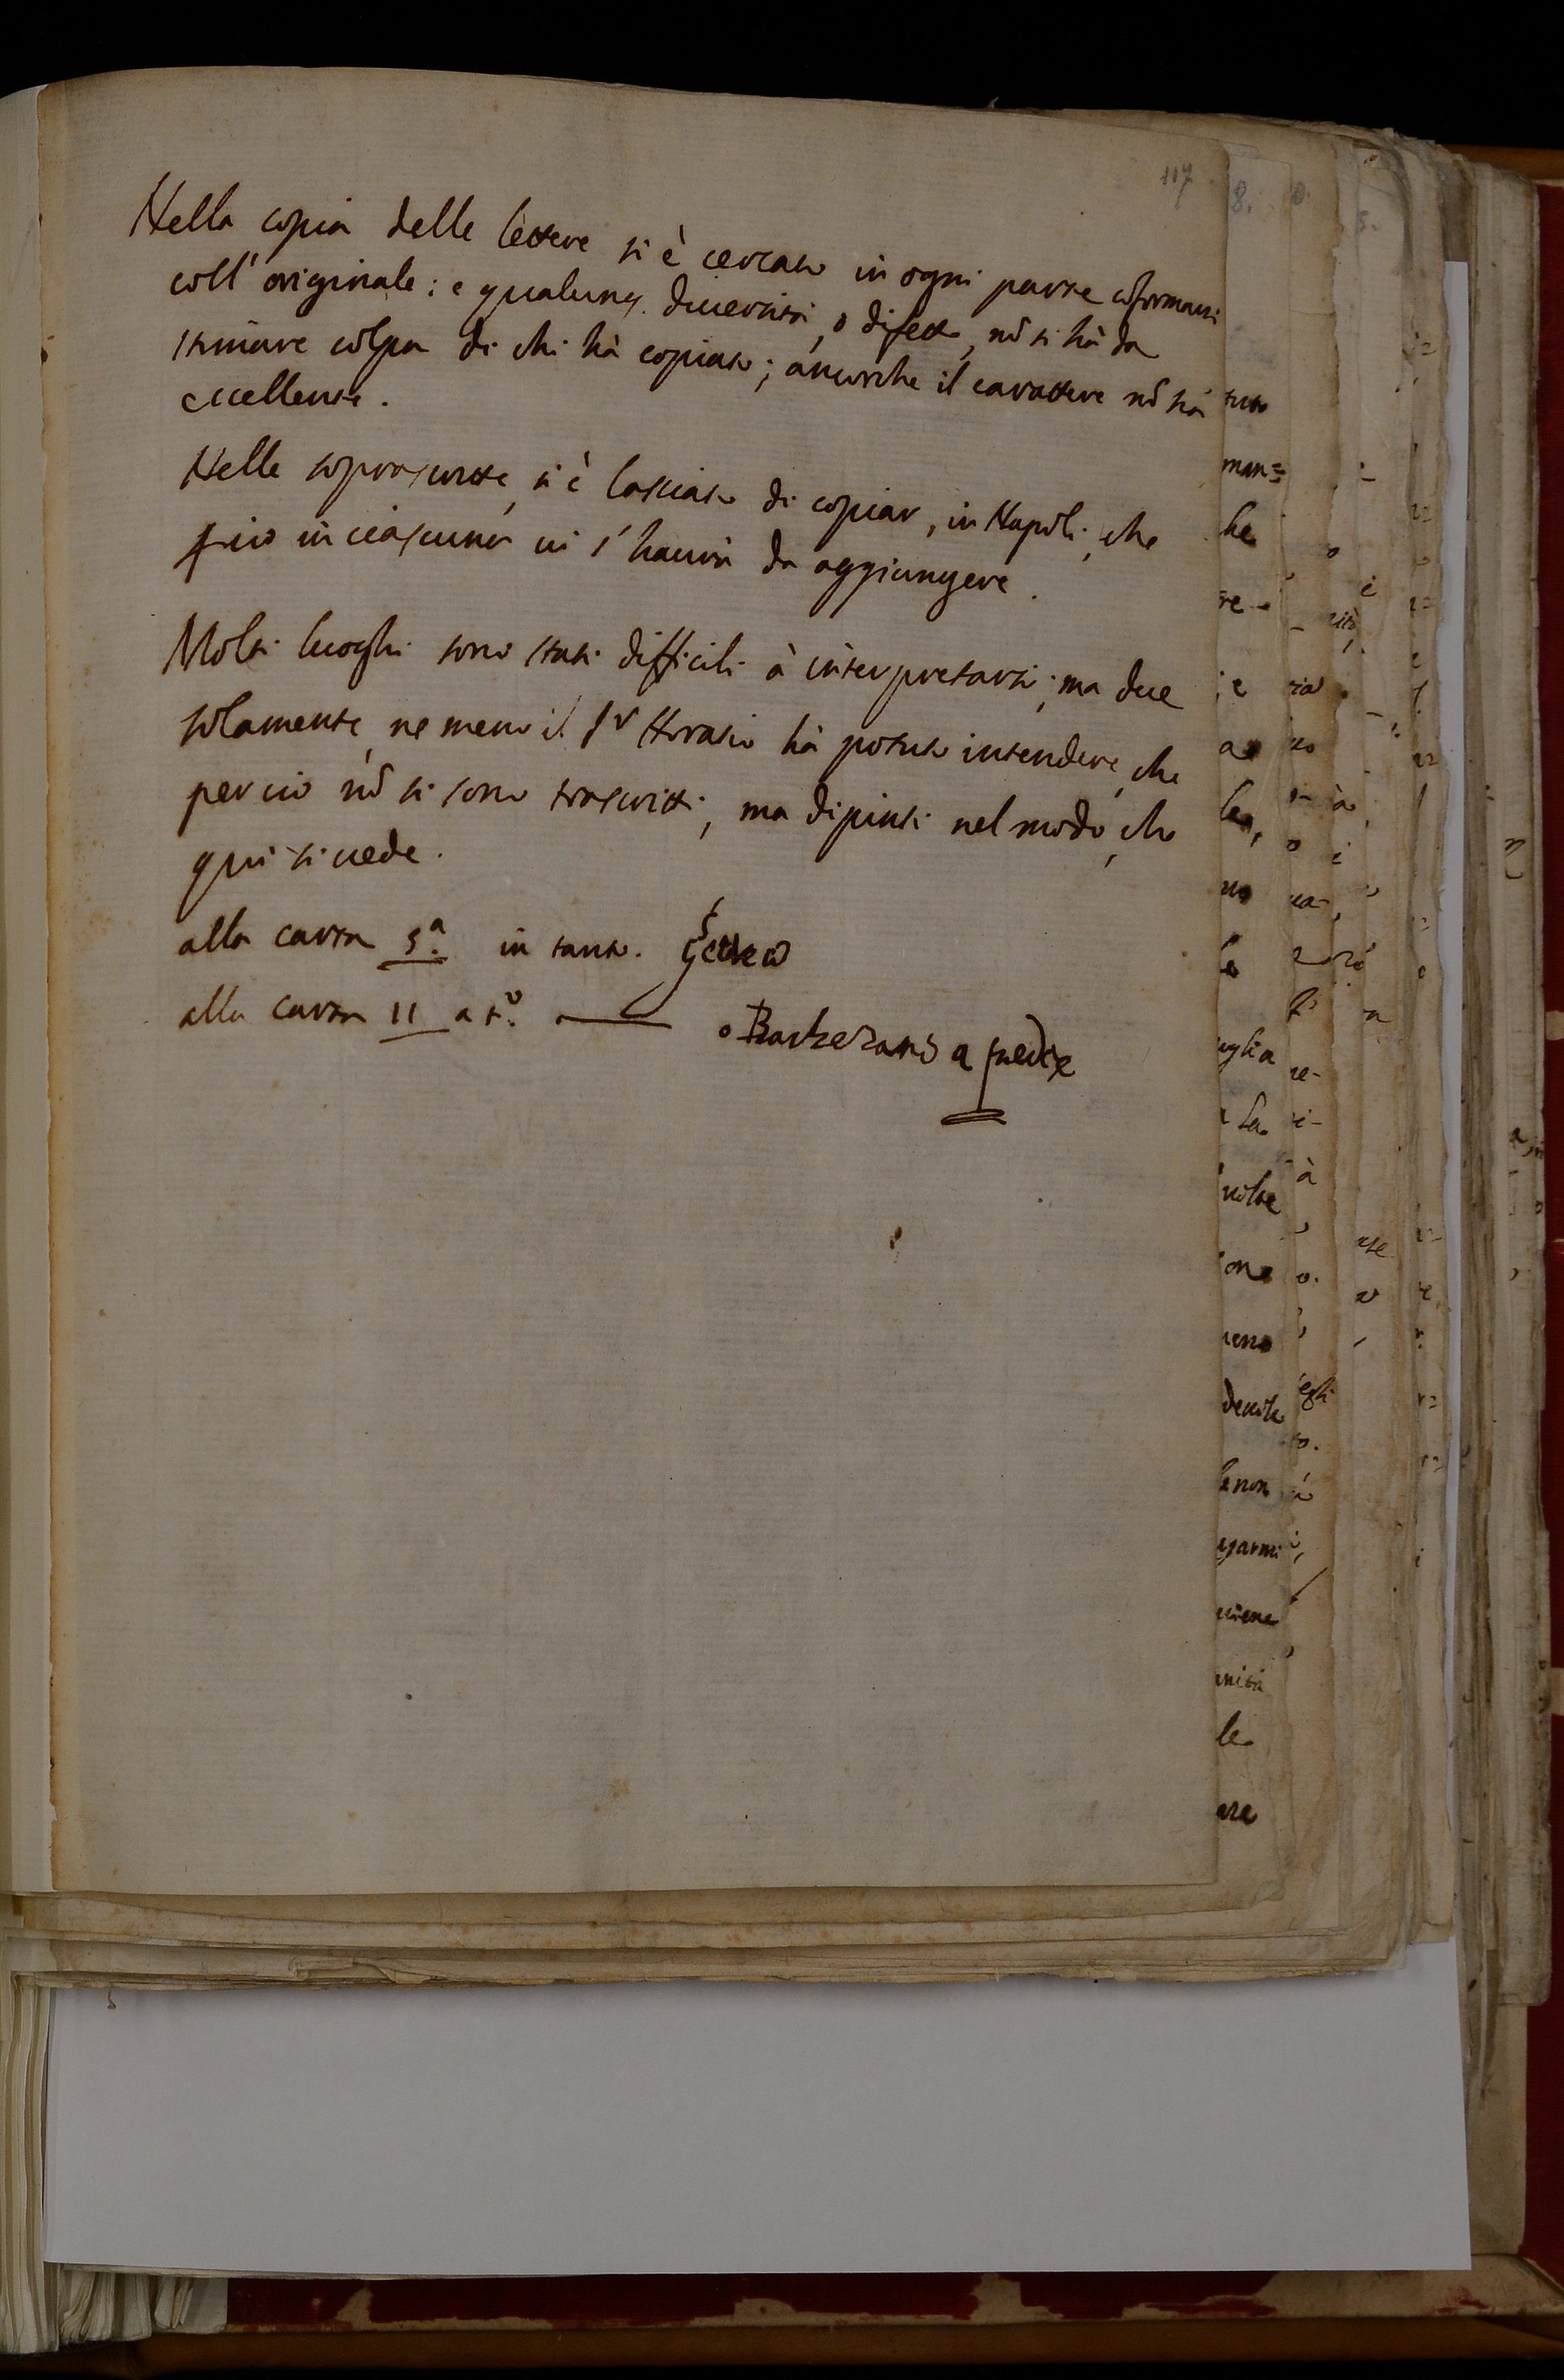 117
Nella copia delle lettere si è cercato in ogni parte cõformarsi
coll' originale; e qualunq. diuersità, o difetto, nõ si hà da
stimare colpa di chi hà copiato; ancorche il carattere nõ sia
eccellente.
Nelle soprascritte, si è lasciato di copiar, in Napoli, che
perciò in ciascuna ui s' haurà da aggiungere.
Molti luoghi sono stati difficili à interpretarsi; ma due
solamente, ne meno il Sr Horatio hà potuto intendere, che
perciò nõ si sono trascritti, ma dipinti nel modo, che
qui si uede.
alla carta 5a. in tanto.
alla carta 11 a to.